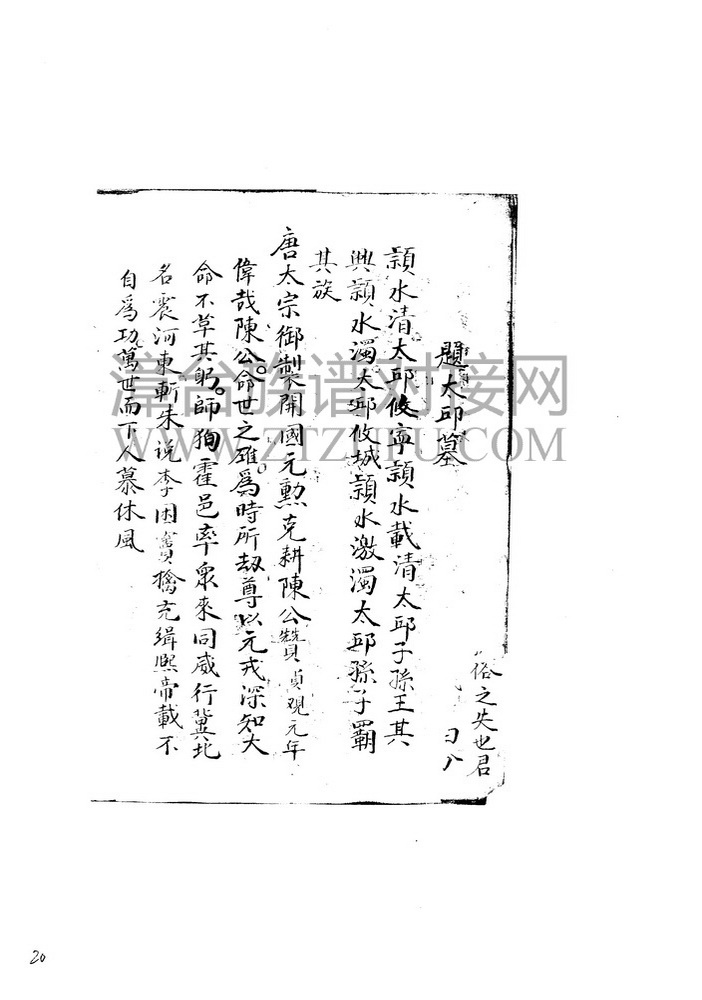 俗之失也君
題太邱墓
頴水清太邱攸寧頴水載清太邱子孫王其
興頴水濁太邱攸城頴水激濁太邱孫子覇
其族
唐太宗御製開國元勲克耕陳公贊貞觀元年
偉哉陳公命世之雄爲時所刼尊以元戎深知大
命不草其躬師狥霍邑率衆來同威行冀北
名震河東斬朱说李困竇擒充緝熈帝載不
自爲功萬世而下人慕休風
漳台族谱对接网
WWW.ZTZUPU.COM
20